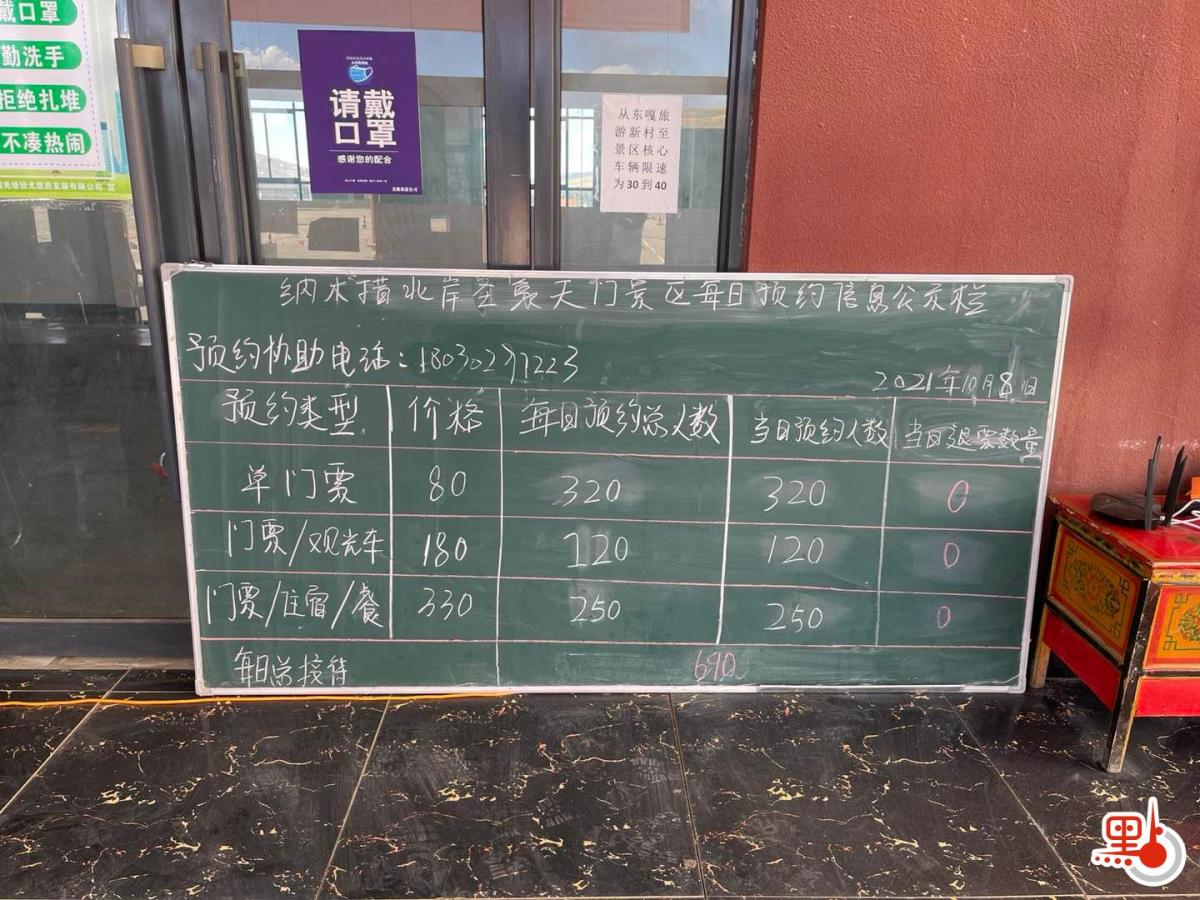 戴口罩
勤洗手
拒绝扎堆
不凑热闹
请戴
口罩
感谢您的配合
从东嘎旅
游新村至
景区核心
车辆限速
为30到40
纳木措北岸圣象天门景区每日预约信息公示栏
预约协助电话:18030291223
2021年10月8日
预约类型 价格 每日预约总人数 当日预约人数 当日退票数量
单门票 80 320 320 0
门票/观光车 180 120 120 0
门票/住宿/餐 330 250 250 0
每日总接待 690
點